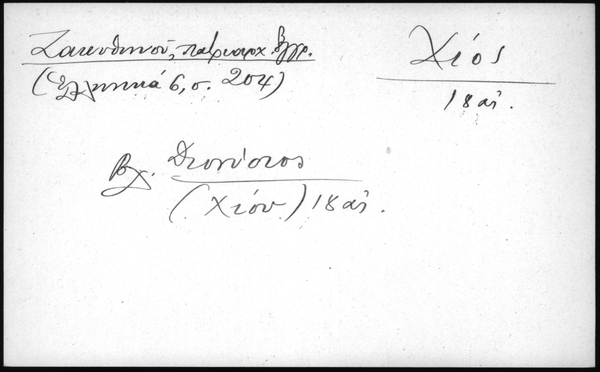 Ζακυθηνοῦ, πατριαρχ. ἔγγρ.
(Ἑλληνικά 6, σ. 204)
Χίος
18 αἰ.
Βχ. Διονύσιος
(Χίου) 18 αἰ.